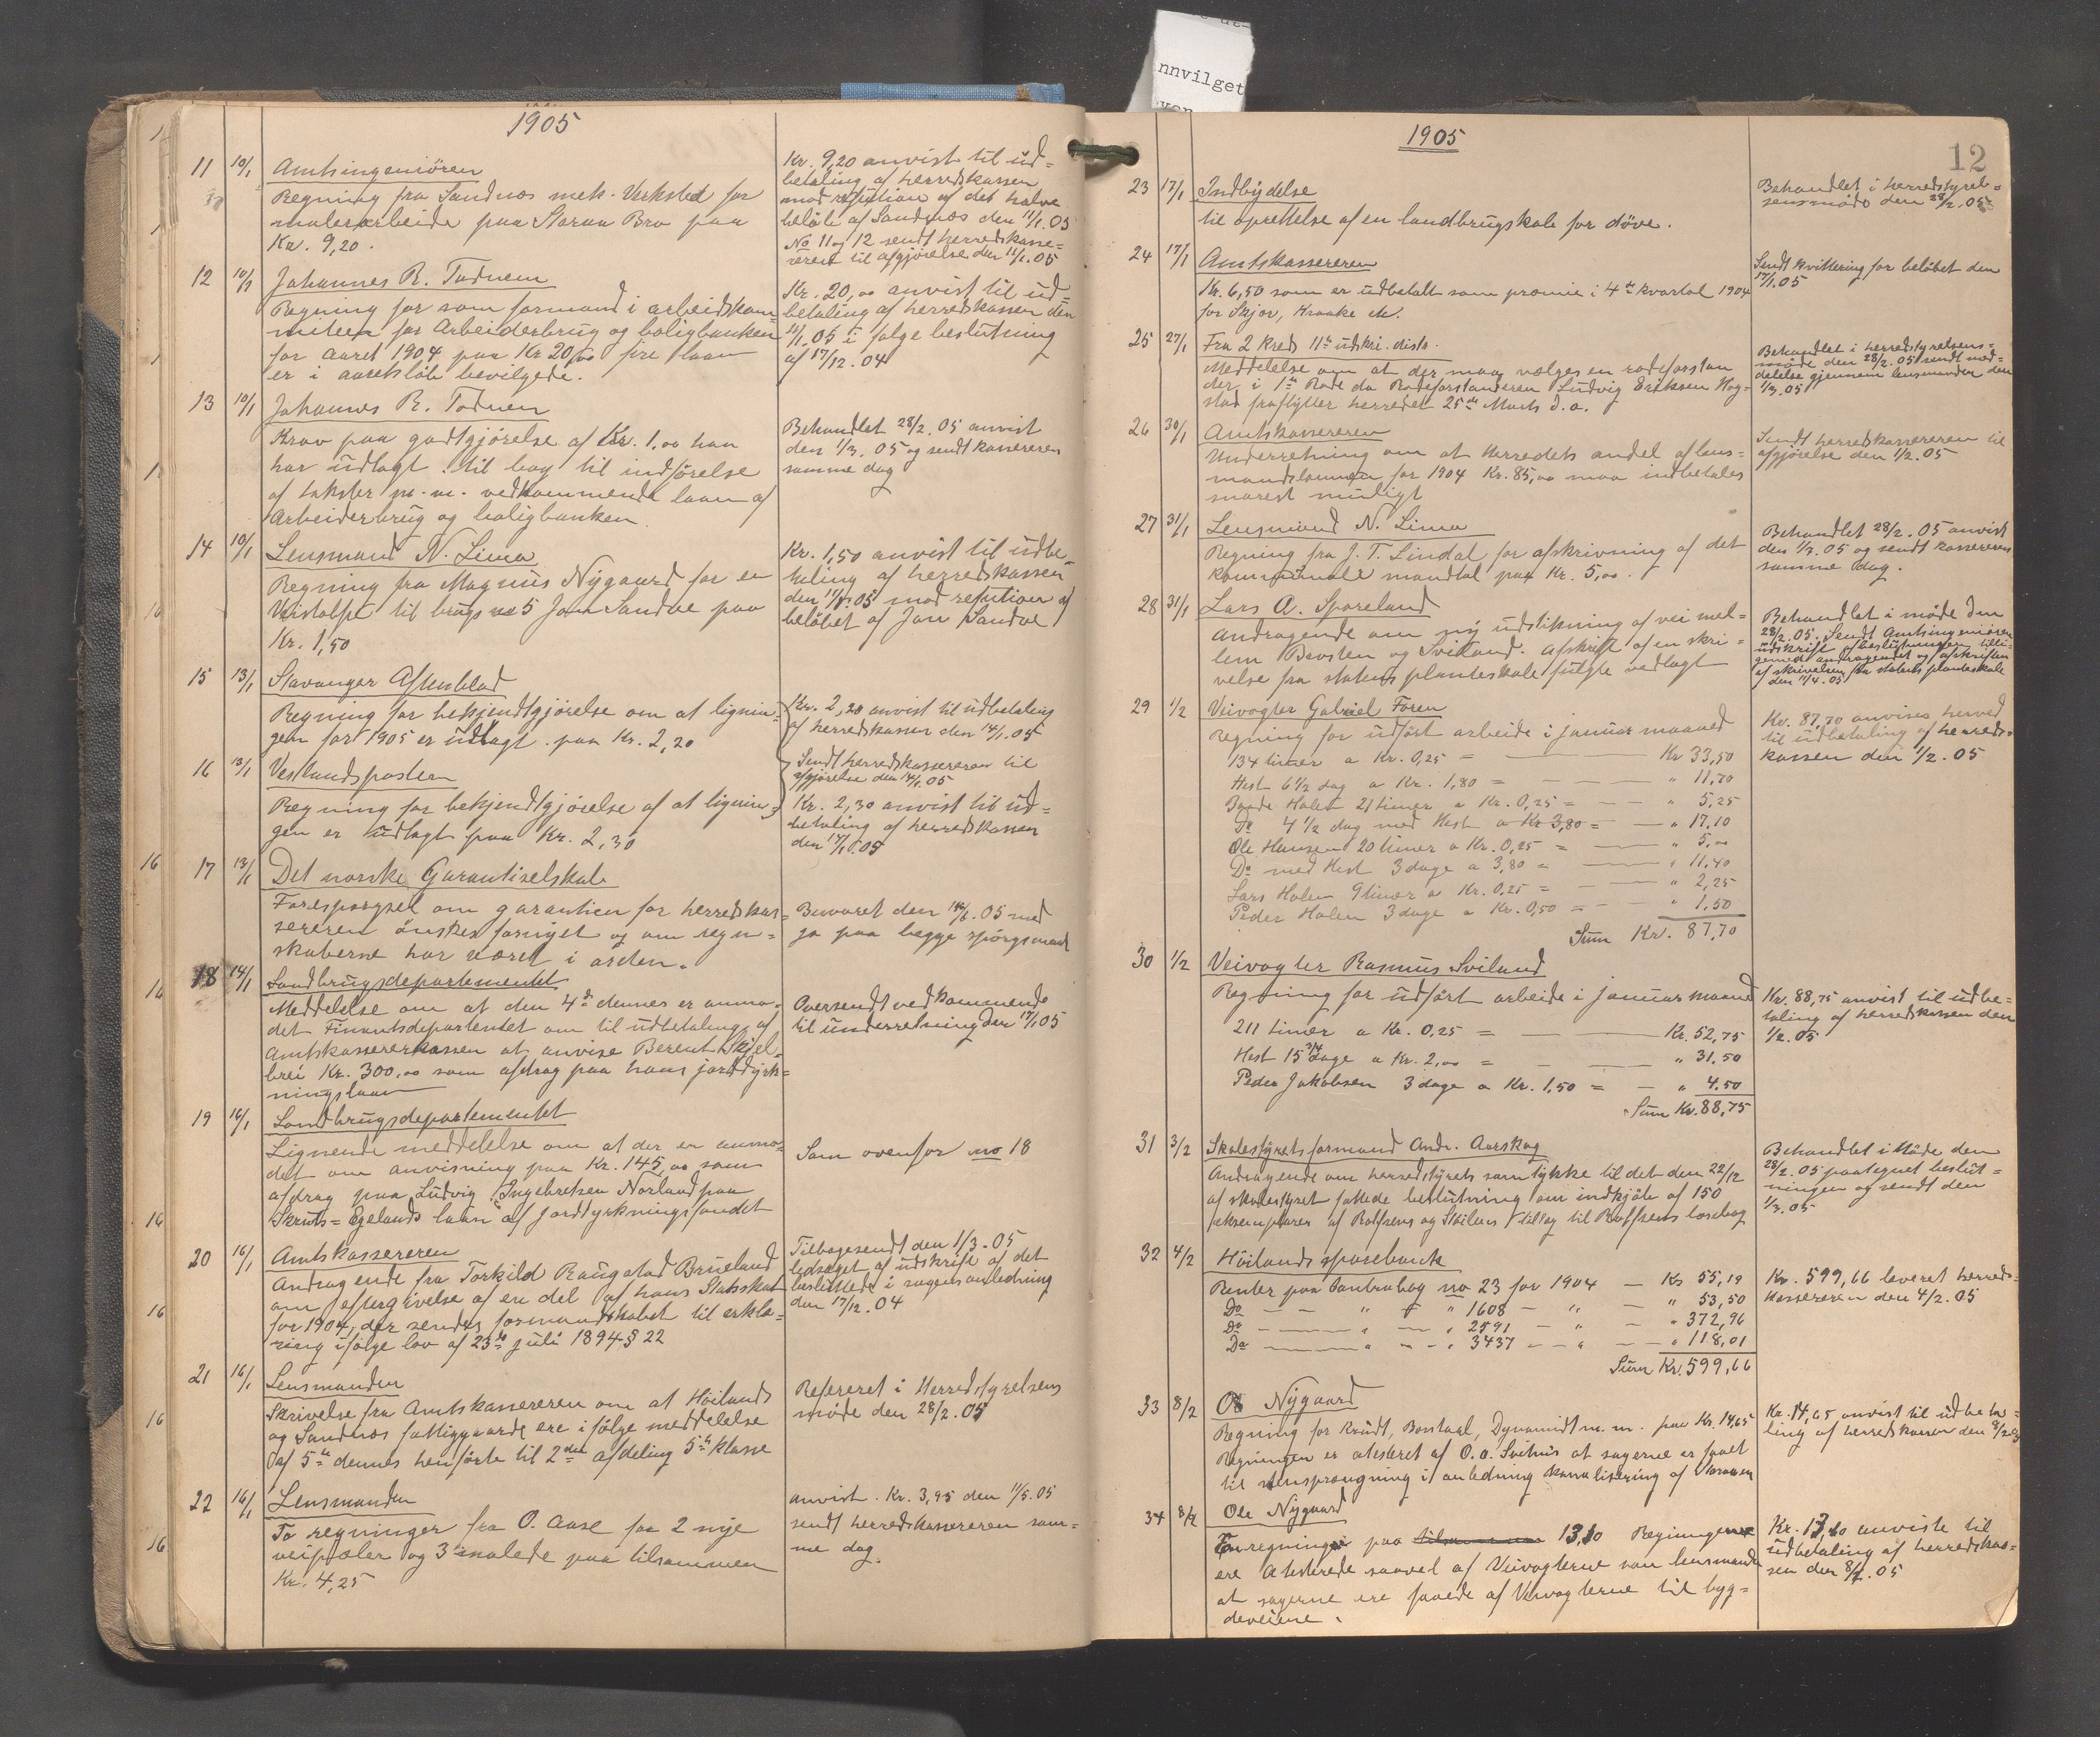 nnvilget
1905
11 10/1 Amtsingeniören
Regning fra Sandnæs mek. Verksted for
malerarbeide paa Storaa Bro paa
Kr. 9,20.
Kr. 9,20 anvist til ud=
betaling af herredskassen
mod refution af det halve
beløb af Sandnæs den 11/1.05
No 11 og 12 sendt herredskasse=
reren til afgjørelse den 11/1.05
12 10/1 Johannes R. Todnem
Regning for som formand i arbeidskom=
miteen for Arbeiderbrug og boligbanken
for aaret 1904 paa Kr 20,00 fire laan
er i aaretsløb bevilgede.
Kr. 20,00 anvist til ud=
betaling af herredskassen den
11/1.05 i følge beslutning
af 17/12.04
13 10/1 Johannes R. Todnem
Krav paa godtgjørelse af Kr. 1.00 han
har udlagt til bog til indførelse
af takster m.m. vedkommende laan af
Arbeiderbrug og boligbanken.
Behandlet 28/2.05 anvist
den 1/3.05 og sendt kassereren
samme dag
14 10/1 Lensmand N. Lima
Regning fra Magnus Nygaard for en
Veistolpe til brugs no 5 Jan Sandve paa
Kr. 1,50
Kr. 1,50 anvist til udbe=
taling af herredskassen
den 11/1.05 mod refution af
beløbet af Jan Sandve
15 13/1 Stavanger Aftenblad
Regning for bekjendtgjørelse om at lignin=
gen for 1905 er udlagt paa Kr. 2,20
Kr. 2,20 anvist til udbetaling
af herredskassen den 14/1.05
Sendt herredskassereren til
afgjørelse den 14/1.05
16 13/1 Vestlandsposten
Regning for bekjendtgjørelse af at lignin=
gen er udlagt paa Kr. 2,30
Kr. 2,30 anvist til ud=
betaling af herredskassen
den 14/1.05
17 13/1 Det norske Garantiselskab
Forespørgsel om garantien for herredskas=
sereren ønskes fornyet og om regn=
skaberne har været i orden.
Besvaret den 14/1.05 med
ja paa begge spørgsmaal
18 14/1 Landbrugsdepartementet
Meddelelse om at den 4de dennes er anmo=
det Finantsdepartentet om til udbetaling af
Amtskassererkassen at anvise Berent Skjel=
brei Kr. 300.00 som afdrag paa hans jorddyrk=
ningslaan
Oversendt vedkommende
til underretning den 17/1 05
19 16/1 Landbrugsdepartementet
Lignende meddelelse om at der er anmo=
det om anvisning paa Kr. 145,00 som
afdrag paa Ludvig Ingebretsen Norland paa
Skruts=Egelands laan af jorddyrkningsfondet
Som ovenfor no 18
20 16/1 Amtskassereren
Andragende fra Torkild Raugstad Brueland
om eftergivelse af en del af hans Statsskat
for 1904, der sendes formandskabet til erklæ=
ring ifølge lov af 23de juli 1894 § 22
Tilbagesendt den 1/3.05
ledsaget af udskrift af det
besluttede i sagens anledning
den 17/12.04
21 16/1 Lensmanden
Skrivelse fra Amtskassereren om at Höilands
og Sandnæs fattiggaarde ere i følge meddelelse
af 5te dennes henførte til 2den afdeling 5te klasse
Refereret i Herredstyrelsens
møde den 28/2.05
22 16/1 Lensmanden
To regninger fra O. Aase for 2 nye
veipæler og 3 malede paa tilsammen
Kr. 4,25
anvist Kr. 3,95 den 11/5.05
sendt herredskassereren sam=
me dag.
1905
12
23 17/1 Indbydelse
til oprettelse af en landbrugskole for døve.
Behandlet i herredstyrel=
sensmøde den 28/2.05
24 17/1 Amtskassereren
Kr. 6,50 som er udbetalt som præmie i 4de kvartal 1904
for Skjor, Kraake etc.
Sendt kvittering for beløbet den
17/1.05
25 27/1 Fra 2 kreds 11te udskr. distr.
Meddelelse om at der maa vælges en rodeforstan
der i 1ste Rode da Rodeforstanderen Ludvig Eriksen Hog=
stad fraflytter herredet 25de Marts d.a.
Behandlet i herredstyrelsens=
møde den 28/2.05 sendt med=
delelse gjennem lensmanden den
1/3.05
26 30/1 Amtskassereren
Underretning om at Herredets andel af lens=
mandslønnen for 1904 Kr. 85,00 maa indbetales
snarest muligt
Sendt herredskassereren til
afgjørelse den 1/2.05
27 31/1 Lensmand N. Lima
Regning fra J. T. Lindal for afskrivning af det
kommunale mandtal paa Kr. 5,00.
Behandlet 28/2.05 anvist
den 1/3.05 og sendt kassereren
samme dag.
28 31/1 Lars A. Sporeland
Andragende om ny udstikning af vei mel=
lem Bevsten og Sviland. Afskrift af en skri=
velse fra statens planteskole fulgte vedlagt
Behandlet i møde den
28/2.05. Sendt Amtsingeniøren
udskrift af beslutningen tilli=
gemed andragendet og afskriften
af skrivelsen fra statens planteskole
den 11/4.05
29 1/2 Veivogter Gabriel Foren
Regning for udført arbeide i januar maaned
134 timer a Kr. 0,25 = Kr 33,50
Hest 6 1/2 dag a Kr. 1,80 = " 11,70
Baade Holen 21 timer a Kr. 0,25 = " 5,25
Do 4 1/2 dag med Hest a Kr 3,80 = " 17,10
Ole Hansen 20 timer a Kr. 0,25 = " 5,00
Do med Hest 3 dage a 3,80 = " 11,40
Lars Holen 9 timer a Kr. 0,25 = " 2,25
Peder Holen 3 dage a Kr. 0,50 = " 1,50
Sum Kr. 87,70
Kr. 87,70 anvises herved
til udbetaling af herreds=
kassen den 1/2.05
30 1/2 Veivogter Rasmus Sviland
Regning for udført arbeide i januar maaned
211 timer a Kr. 0,25 = Kr. 52,75
Hest 15 3/4 dage a Kr. 2,00 = " 31,50
Peder Jakobsen 3 dage a Kr. 1,50 = " 4.50
Sum Kr. 88,75
Kr. 88,75 anvist til udbe=
taling af herredskassen den
1/2.05
31 3/2 Skolestyrets formand Andr. Aarskog
Andragende om herredstyrets samtykke til det den 22/12
af skolestyret fattede beslutning om indkjøb af 150
eksemplarer af Rolfsens og Stoilens tillæg til Rolfsens læsebog
Behandlet i Møde den
28/2.05 paategnet beslut=
ningen og sendt den
1/3.05
32 4/2 Höilands sparebank
Renter paa bankbog no 23 for 1904 — Kr 55,19
Do " " 1608 " " 53,50
Do " " 2591 " " 372,96
Do " " 3437 " " 118,01
Sum Kr. 599,66
Kr. 599,66 leveret herreds=
kassereren den 4/2.05
33 8/2 Ole Nygaard
Regning for Krudt, Borstaal, Dynamidt m.m. paa Kr. 14,65
Regningen er atesteret af O. a. Svihus at sagerne er faaet
til stensprængning i anledning kanalisering af Storaaen
Kr. 14,65 anvist til udbeta=
ling af herredskassen den 8/2.05
34 8/2 Ole Nygaard
En regning paa tilsammen 13,10 Regningerne
ere Atesterede saavel af Veivogterne som lensmanden
at sagerne ere faaede af Veivogterne til byg=
deveiene.
Kr. 13,10 anviste til
udbetaling af herredskas=
sen den 8/2.05